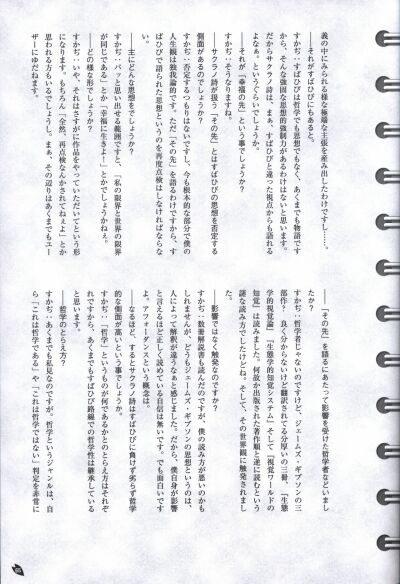 義の中にみられる様な極端な主張を産み出したわけですし……。
――それがすばひびにもあると。
すかぢ：すばひびは哲学でも思想でもなく、あくまでも物語です
から、そんな強固な思想的強制力があるわけはないと思います。
だからサクラノ詩は、まぁ、すばひびと違った視点からも語れる
よなぁ。というぐらいでしょうか。
――それが「幸福の先」という事でしょうか？
すかぢ：そうなりますね。
――サクラノ詩が扱う「その先」とはすばひびの思想を否定する
側面があるのでしょうか？
すかぢ：否定するつもりはないですし、今も根本的な部分で僕の
人生観は独我論的です。ただ「その先」を語るわけですから、す
ばひびで語られた思想というのを再度点検はしなければならな
い。
――主にどんな思想をでしょうか？
すかぢ：パッと思い出せる範囲ですと、「私の限界と世界の限界
が同じである」とか「幸福に生きよ！」とかでしょうかねぇ。
――どの様な形でしょうか？
すかぢ：いや、それはさすがに作品をやっていただいてという形
になります。もちろん「全然、再点検なんかされてねぇよ」とか
思われる方もいるでしょうし。まぁ、その辺りはあくまでもユー
ザーにゆだねます。
――「その先」を語るにあたって影響を受けた哲学者などいまし
たか？
すかぢ：哲学者じゃないのですけど、ジェームズ・ギブソンの三
部作？　良く分からないけど翻訳されてる分厚いの三冊、「生態
学的視覚論」「生態学的知覚システム」そして「視覚ワールドの
知覚」は読みました。何故か出版された著作順と逆に読むという
謎な読み方でしたけどね。そして、その世界観に触発されまし
た。
――影響ではなく触発なのですか？
すかぢ：数冊解説書も読んだのですが、僕の読み方が悪いのかも
しれませんが、どうもジェームズ・ギブソンの思想というのは、
人によって解釈が違うなぁと感じました。だから、僕自身が影響
と言えるほど正しく読めている自信は無いです。でも面白いです
よ。アフォーダンスという概念は。
――なるほど、するとサクラノ詩はすばひびに負けず劣らず哲学
的な側面が濃いという事でしょうか。
すかぢ：「哲学」というものが何であるかのとらえ方はそれぞ
れですから、あくまでもすばひび路線での哲学性は継承している
と思います。
――哲学のとらえ方？
すかぢ：あくまでも私見なのですが、哲学というジャンルは、自
ら「これは哲学である」や「これは哲学ではない」判定を非常に